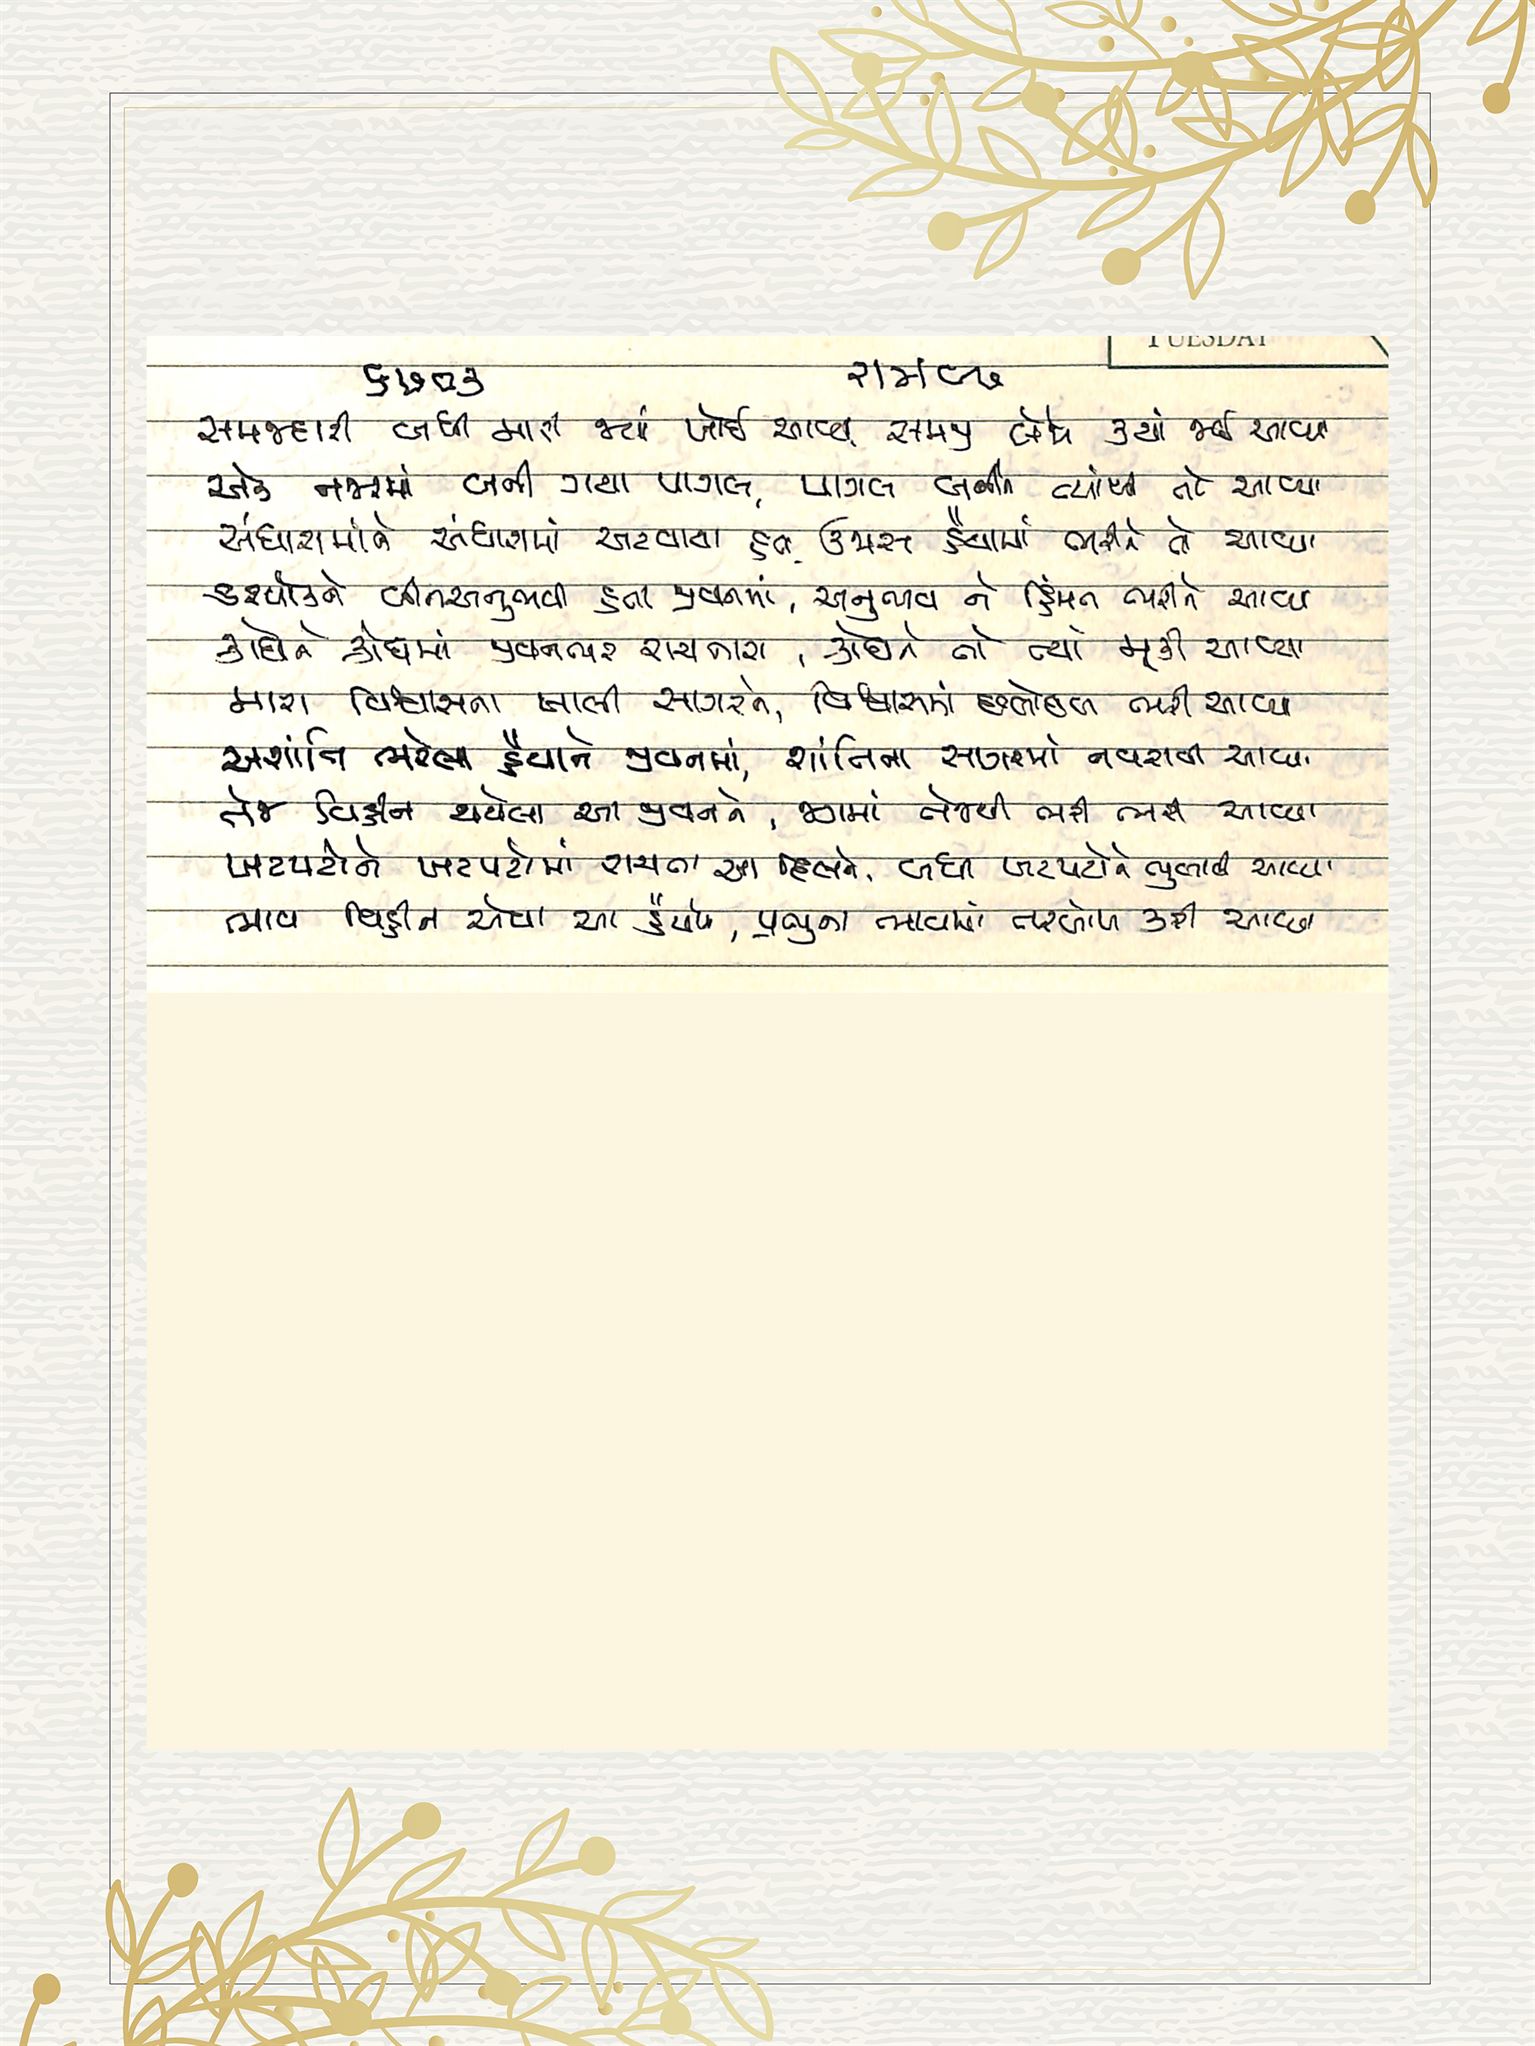 TUESDAY
સમજદારી બધી મારી જ્યાં ખોઈ આવ્યા સમય ક્યાં જઈ આવ્યા
એક નજરમાં બની ગયા પાગલ, પાગલ બનીને ત્યાંથી તો આવ્યા
અંધારામાંને અંધારામાં અટવાયા હતા, હૈયામાં ભરીને તો આવ્યા
બીનઅનુભવી હતા જીવનમાં, અનુભવ ને હિંમત ભરીને આવ્યા
ક્રોધને ક્રોધમાં જીવનભર રાચનારા, ક્રોધને તો ત્યાં મૂકી આવ્યા
મારા વિશ્વાસના ખાલી સાગરને, વિશ્વાસમાં છલોછલ ભરી આવ્યા
અશાંતિ ભરેલા હૈયાને જીવનમાં, શાંતિના સાગરમાં નવરાવી આવ્યા
તેજ વિહીન થયેલા આ જીવનને, તેજથી ભરી ભરી આવ્યા
ખટપટોને ખટપટોમાં રાચતા આ દિલને, બધી ખટપટોને ભુલાવી આવ્યા
ભાવ વિહીન એવા આ હૈયાને, પ્રભુના ભાવમાં તરબોળ કરી આવ્યા